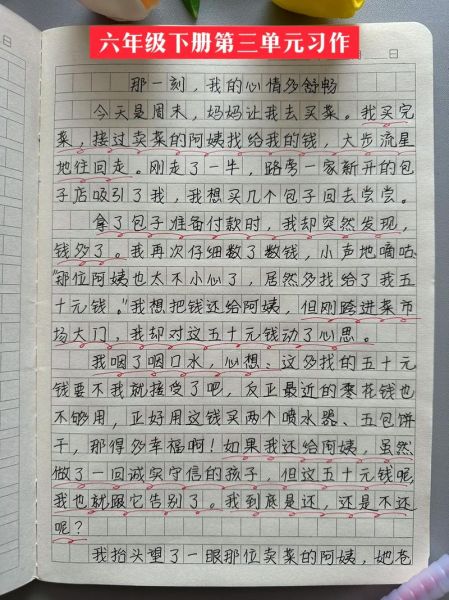 六年级下册第三单元习作
日
那一刻,我的心情多舒畅
今天是周末,妈妈让我去买菜。我买完
菜,接过卖菜的阿姨找给我的钱,大步流星
地往回走。刚走了一半,路旁一家新开的包
子店吸引了我,我想买几个包子回去尝尝。
拿了包子准备付款时,我却突然发现,
钱多了。我再次仔细数了数钱,小声地嘀咕:
"那位阿姨也太不小心了,居然多找给了我五
十元钱。"我想把钱还给阿姨,但刚跨进菜市
场大门,我却对这五十元钱动了心思。
我咽了咽口水,心想:这多找的五十元
钱要不我就接受了吧,反正最近的零花钱也
不够用,正好用这钱买两个喷水器、五包饼
干,那得多幸福啊!如果我还给阿姨,虽然
做了一回诚实守信的孩子,但这五十元钱呢,
我也就跟它告别了。我到底是还,还是不还
呢?
我抬头望了一眼那位卖菜的阿姨,她老